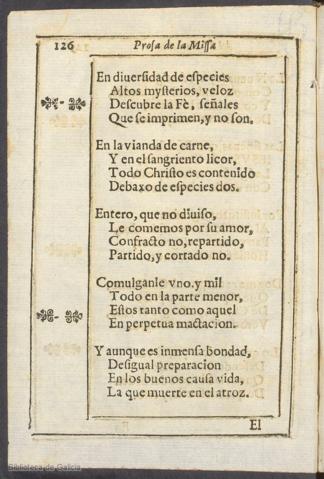 126 Prosa de la Missa
En diuersidad de especies
Altos mysterios, veloz
Descubre la Fè, señales
Que se imprimen, y no son.
En la vianda de carne,
Y en el sangriento licor,
Todo Christo es contenido
Debaxo de especies dos.
Entero, que no diuiso,
Le comemos por su amor,
Confracto no, repartido,
Partido, y cortado no.
Comulganle vno. y mil
Todo en la parte menor,
Estos tanto como aquel
En perpetua mactacion.
Y aunque es inmensa bondad,
Desigual preparacion
En los buenos causa vida,
La que muerte en el atroz.
El
Biblioteca de Galicia